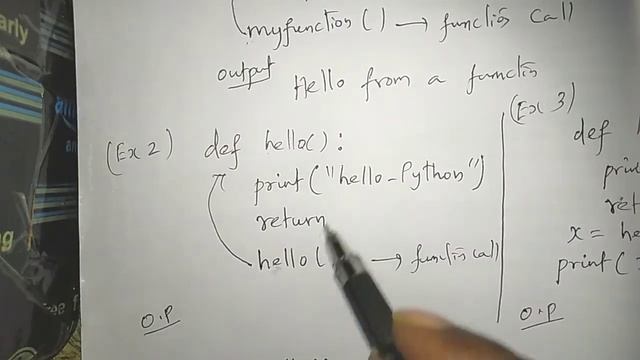 myfunction() → function call
output
Hello from a function
(Ex 2) def hello():
print("hello-Python")
return
hello( → function call
O.P
(Ex 3)
def
prin
ret
x = he
print(
O.P